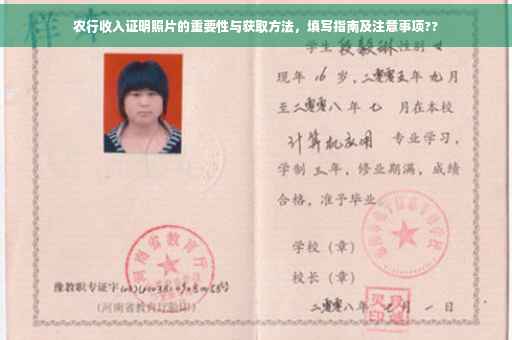 农行收入证明照片的重要性与获取方法，填写指南及注意事项??
学生 段毅琳 性别 女
现年 16 岁，二零零五年 九月
至二零零八年 七 月在本校
计算机应用 专业学习，
学制 三年，修业期满，成绩
合格，准予毕业。
学校（章）
校长（章）
二零零八年 月 一 日
河南省教育厅
豫教职专证字
（河南省教育厅验印）